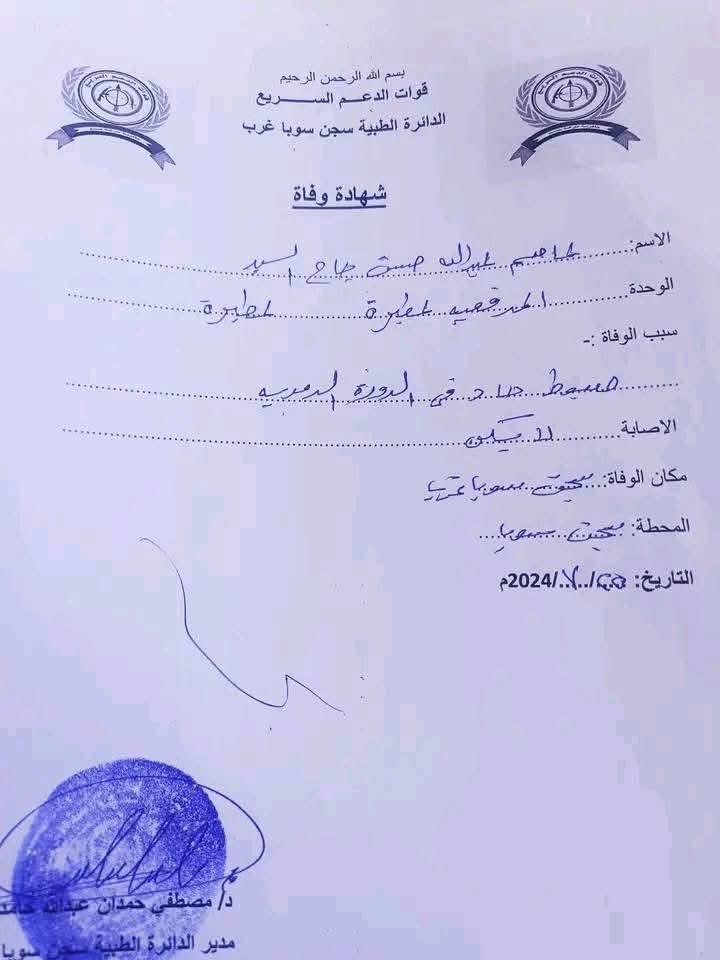 بسم الله الرحمن الرحيم
قوات الدعم السريع
الدائرة الطبية سجن سوبا غرب
شهادة وفاة
الاسم: عاصم عبدالله حسن حاج السيد
الوحدة
سبب الوفاة :-
هبوط حاد في الدورة الدموية
الاصابة
مكان الوفاة: سجن سوبا غرب
المحطة: سجن سوبا
التاريخ: /2024م
د/ مصطفي حمدان عبدالله حامد
مدير الدائرة الطبية سجن سوبا